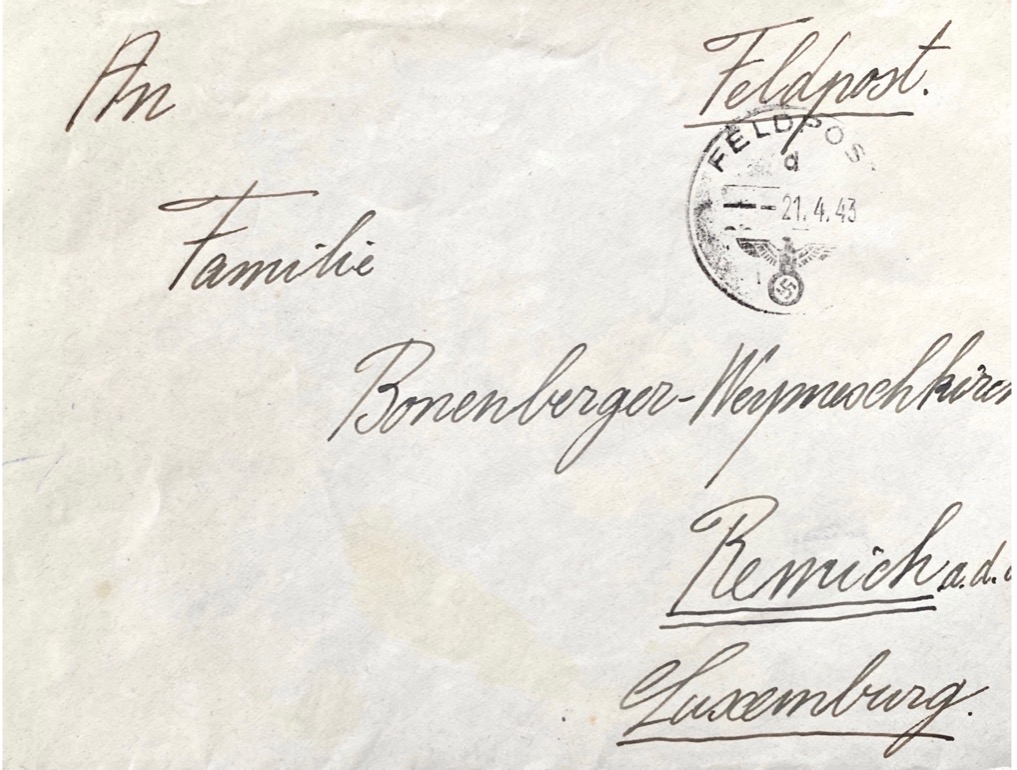 An
Feldpost.
FELDPOST
d
-21.4.43
Familie
Bonenberger-Weymeschkirch
Remich a.d.
Luxemburg.